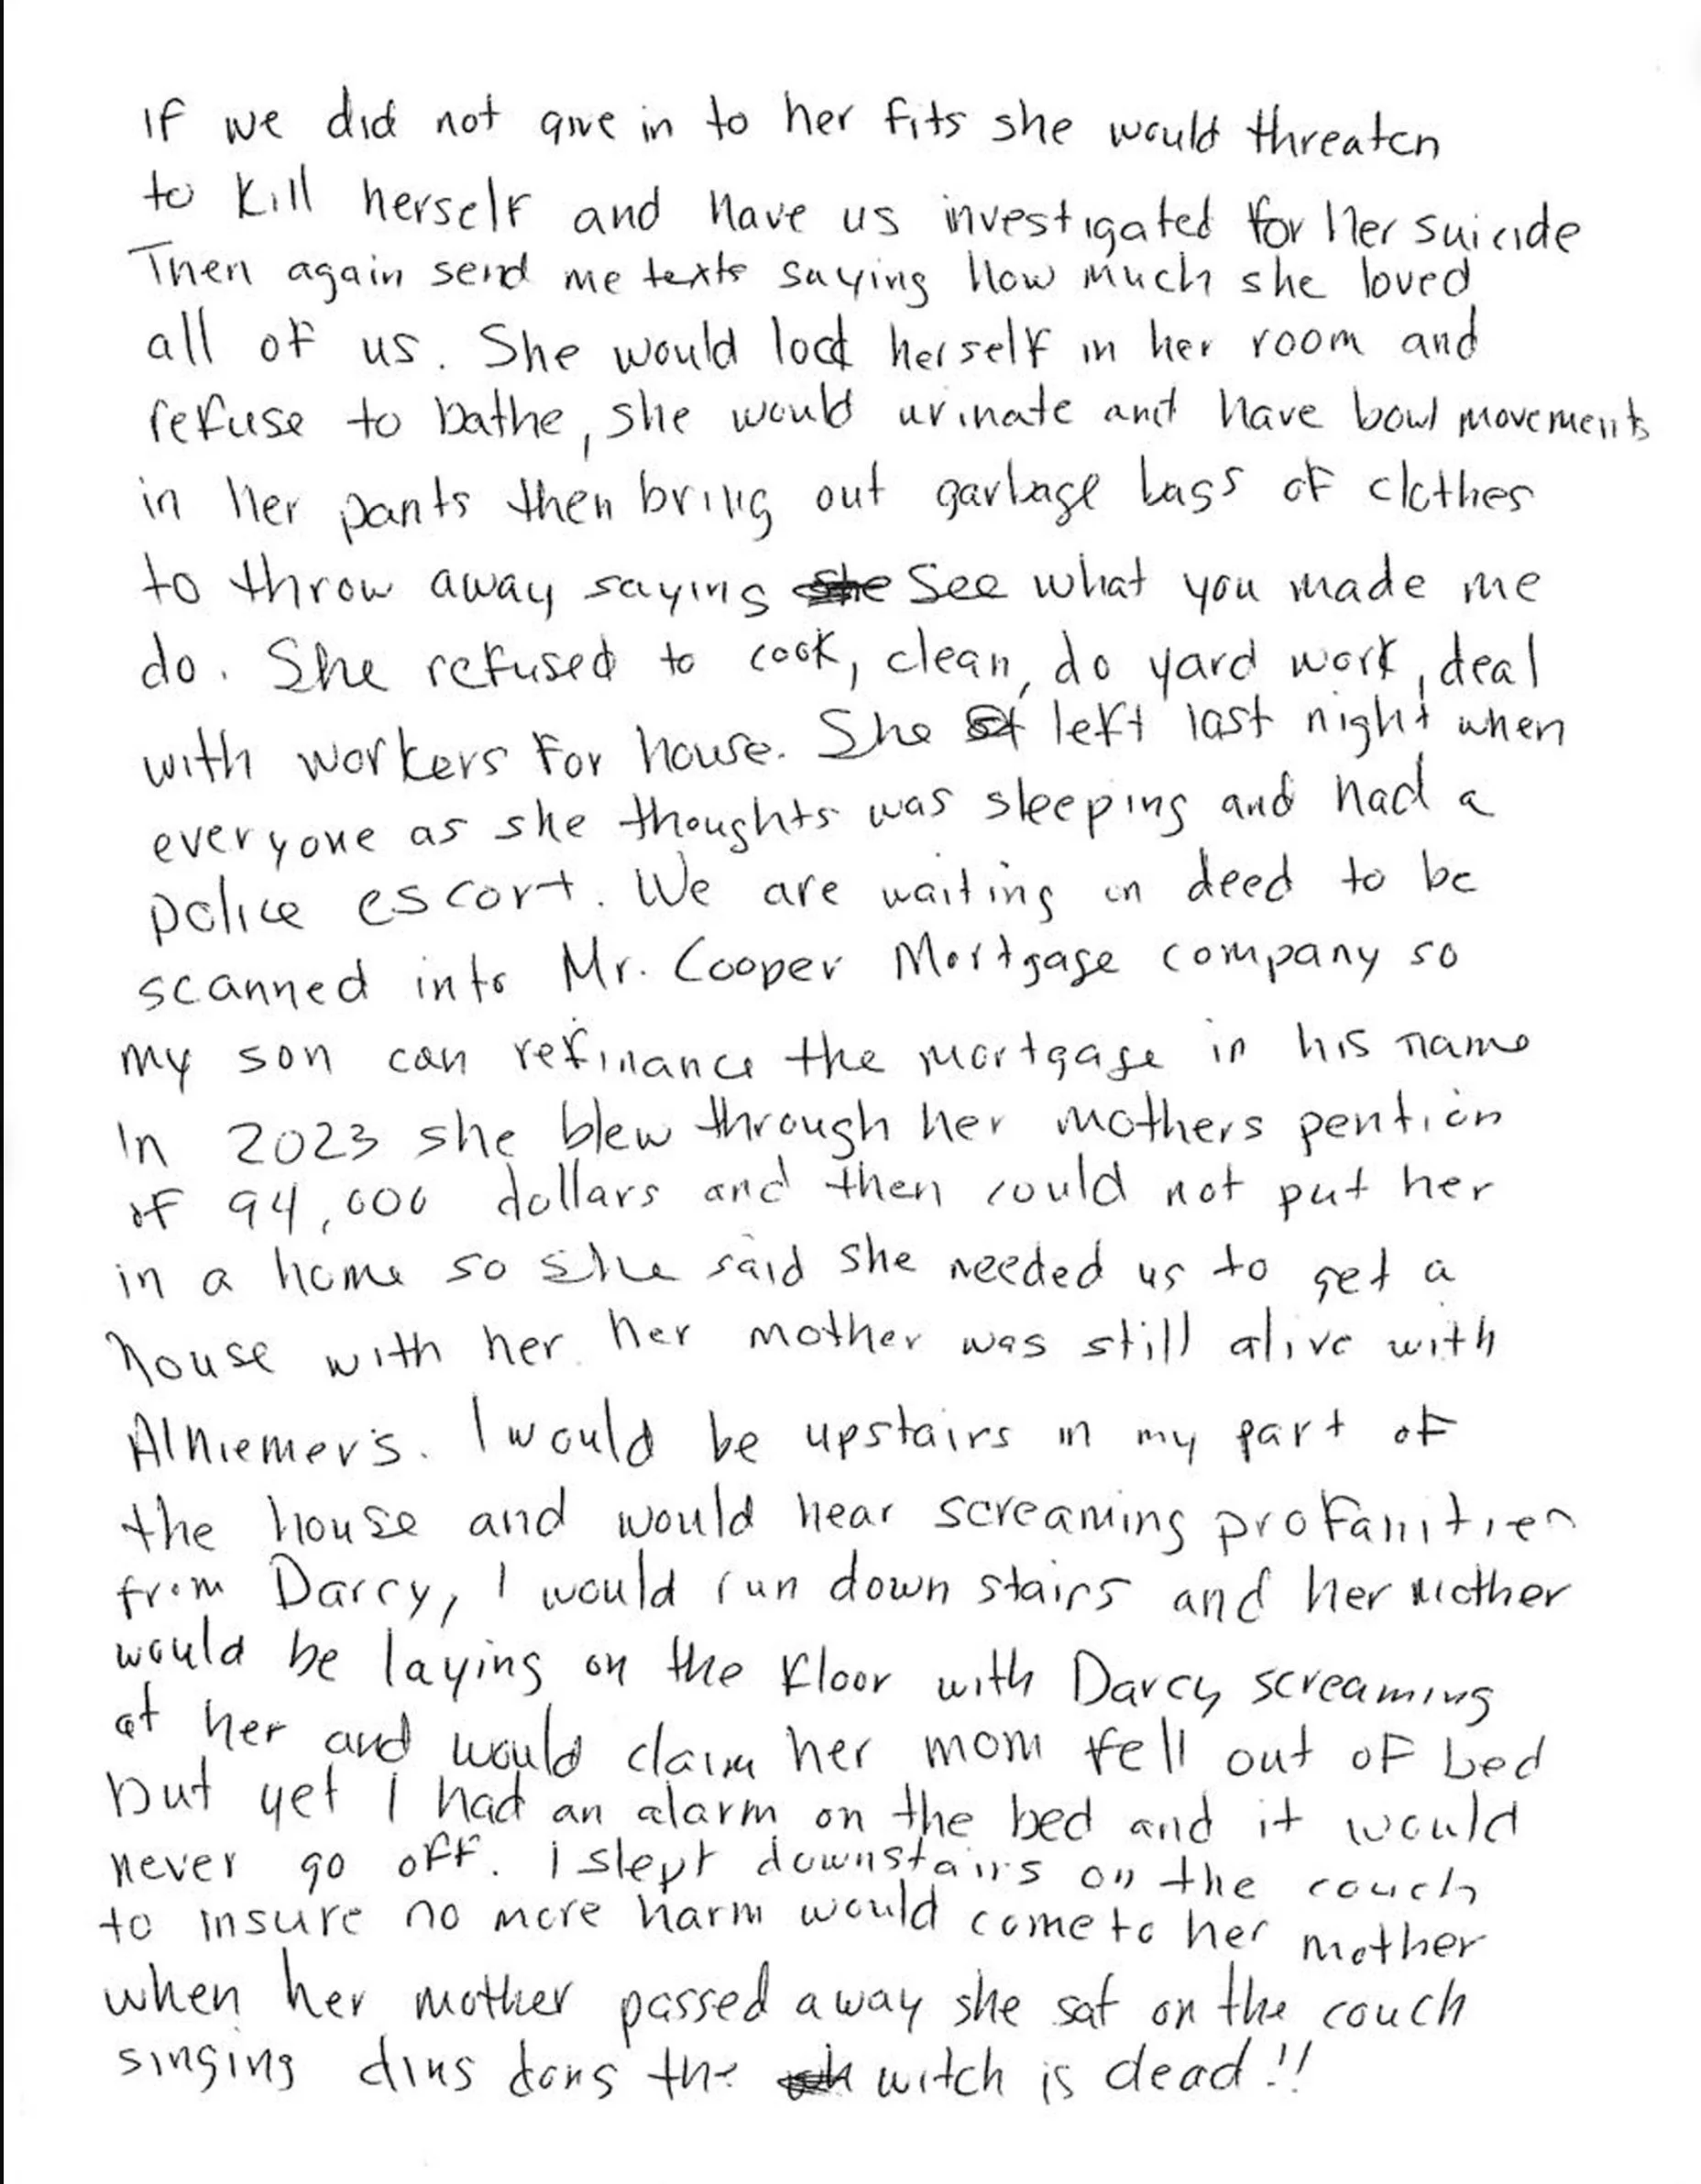 If we did not give in to her fits she would threaten
to kill herself and have us investigated for her suicide
Then again send me texts saying how much she loved
all of us. She would lock herself in her room and
refuse to bathe, she would urinate and have bowl movements
in her pants then bring out garbage bags of clothes
to throw away saying she See what you made me
do. She refused to cook, clean, do yard work, deal
with workers for house. She left last night when
everyone as she thoughts was sleeping and had a
police escort. We are waiting on deed to be
scanned into Mr. Cooper Mortgage company so
my son can refinance the mortgage in his name
In 2023 she blew through her mothers pention
of 94,000 dollars and then could not put her
in a home so she said she needed us to get a
house with her. her mother was still alive with
Alhiemer's. I would be upstairs in my part of
the house and would hear screaming profanities
from Darcy, I would run down stairs and her mother
would be laying on the floor with Darcy screaming
at her and would claim her mom fell out of bed
but yet I had an alarm on the bed and it would
never go off. I slept downstairs on the couch
to insure no more harm would come to her mother
when her mother passed away she sat on the couch
singing ding dong the witch is dead!!